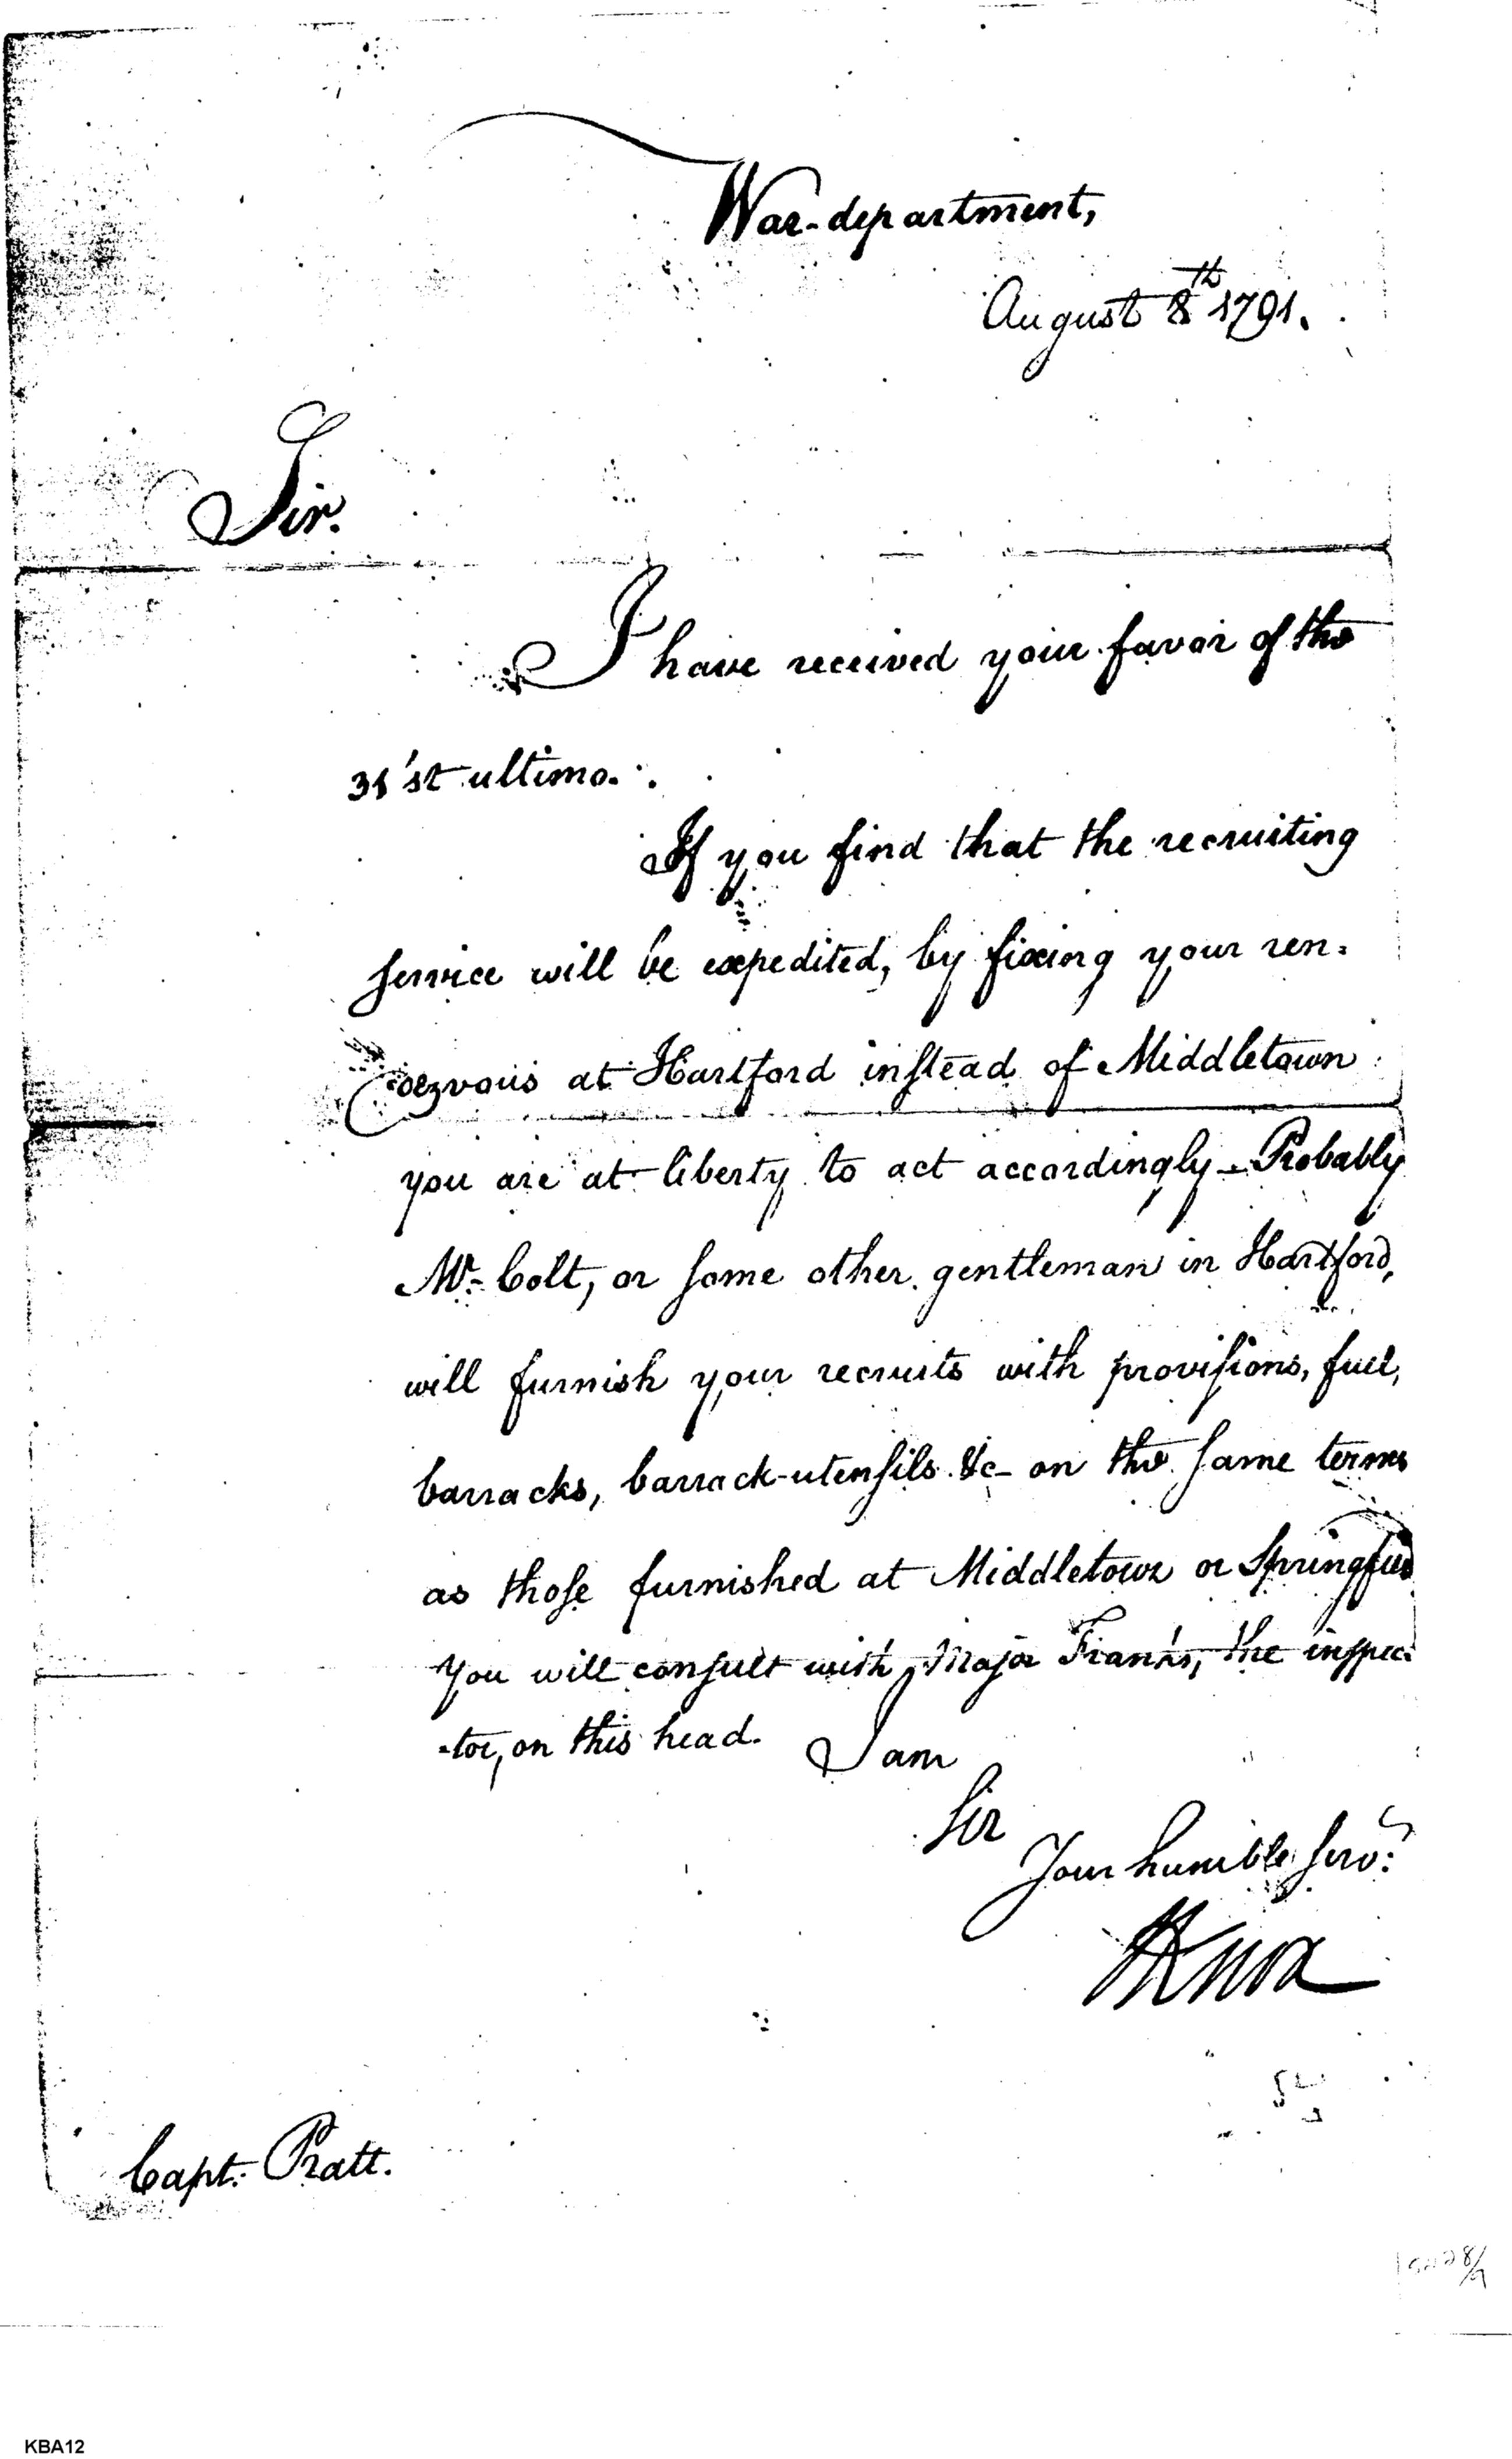 War-department,
August 8th 1791.
Sir.
I have received your favor of the
31'st ultimo.
If you find that the recruiting
service will be expedited, by fixing your ren-
dezvous at Hartford instead of Middletown
you are at liberty to act accordingly - Probably
Mr. Colt, or some other gentleman in Hartford,
will furnish your recruits with provisions, fuel,
barracks, barrack-utensils &c- on the same terms
as those furnished at Middletown or Springfield
You will consult with Major Franks, the inspec-
-tor, on this head. I am
Sir
Your humble serv:t
HKnox
Capt: Pratt.
KBA12